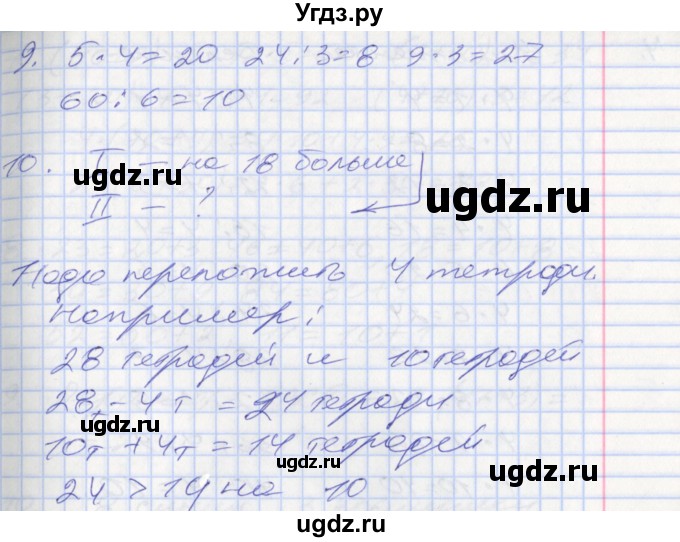 Угдз.ру
9. 5 · 4 = 20 24 : 3 = 8 9 · 3 = 27
60 : 6 = 10
10. I — на 18 больше
ugdz.ru
ugdz.ru
II — ?
Надо переложить 4 тетради.
Например:
28 тетрадей и 10 тетрадей
ugdz.ru
28т - 4т = 24 тетради
ugdz.ru
10т + 4т = 14 тетрадей
ugdz.ru
24 > 14 на 10
ugdz.ru